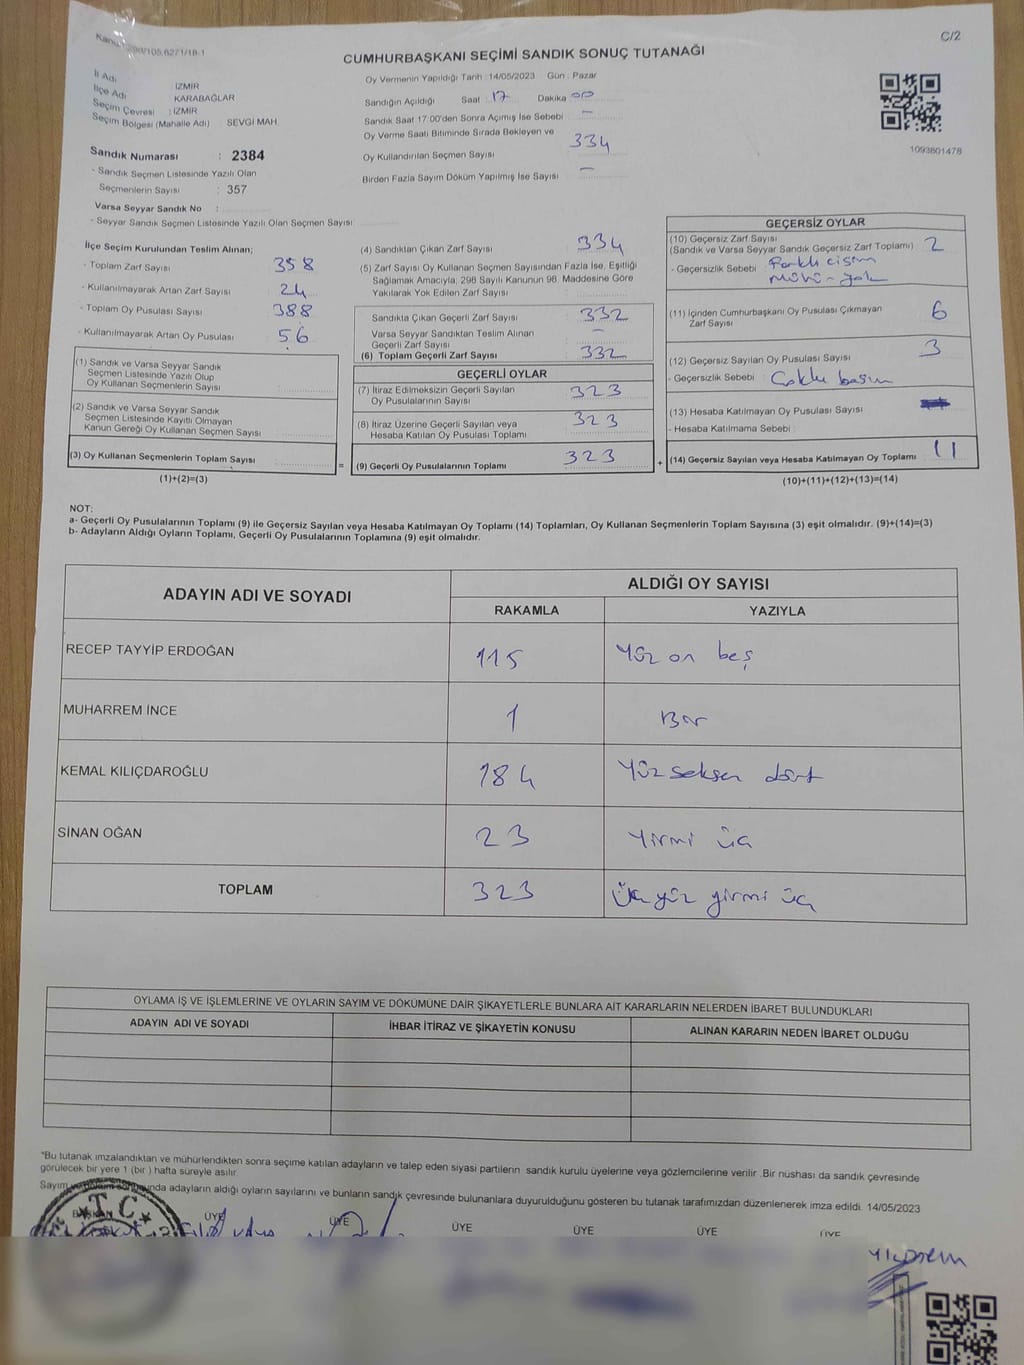 C/2
CUMHURBAŞKANI SEÇİMİ SANDIK SONUÇ TUTANAĞI
İl Adı : İZMİR
İlçe Adı : KARABAĞLAR
Seçim Çevresi : İZMİR
Seçim Bölgesi (Mahalle Adı) : SEVGİ MAH.
Sandık Numarası : 2384
- Sandık Seçmen Listesinde Yazılı Olan
Seçmenlerin Sayısı : 357
Varsa Seyyar Sandık No :
- Seyyar Sandık Seçmen Listesinde Yazılı Olan Seçmen Sayısı
Oy Vermenin Yapıldığı Tarih : 14/05/2023 Gün : Pazar
Sandığın Açıldığı Saat : 17 Dakika 00
Sandık Saat 17:00'den Sonra Açımış İse Sebebi —
Oy Verme Saati Bitiminde Sırada Bekleyen ve
Oy Kullandırılan Seçmen Sayısı 334
Birden Fazla Sayım Döküm Yapılmış İse Sayısı —
1093801478
İlçe Seçim Kurulundan Teslim Alınan;
- Toplam Zarf Sayısı 358
- Kullanılmayarak Artan Zarf Sayısı 24
- Toplam Oy Pusulası Sayısı 388
- Kullanılmayarak Artan Oy Pusulası 56
(1) Sandık ve Varsa Seyyar Sandık
Seçmen Listesinde Yazılı Olup
Oy Kullanan Seçmenlerin Sayısı
(2) Sandık ve Varsa Seyyar Sandık
Seçmen Listesinde Kayıtlı Olmayan
Kanun Gereği Oy Kullanan Seçmen Sayısı
(3) Oy Kullanan Seçmenlerin Toplam Sayısı
(1)+(2)=(3)
(4) Sandıktan Çıkan Zarf Sayısı 334
(5) Zarf Sayısı Oy Kullanan Seçmen Sayısından Fazla İse, Eşitliği
Sağlamak Amacıyla; 298 Sayılı Kanunun 98. Maddesine Göre
Yakılarak Yok Edilen Zarf Sayısı
Sandıkta Çıkan Geçerli Zarf Sayısı 332
Varsa Seyyar Sandıktan Teslim Alınan
Geçerli Zarf Sayısı —
(6) Toplam Geçerli Zarf Sayısı 332
GEÇERLİ OYLAR
(7) İtiraz Edilmeksizin Geçerli Sayılan
Oy Pusulalarının Sayısı 323
(8) İtiraz Üzerine Geçerli Sayılan veya
Hesaba Katılan Oy Pusulası Toplamı 323
= (9) Geçerli Oy Pusulalarının Toplamı 323 +
GEÇERSİZ OYLAR
(10) Geçersiz Zarf Sayısı
(Sandık ve Varsa Seyyar Sandık Geçersiz Zarf Toplamı) 2
- Geçersizlik Sebebi : Farklı cisim
mühür yok
(11) İçinden Cumhurbaşkanı Oy Pusulası Çıkmayan
Zarf Sayısı 6
(12) Geçersiz Sayılan Oy Pusulası Sayısı 3
- Geçersizlik Sebebi : Çoklu basım
(13) Hesaba Katılmayan Oy Pusulası Sayısı
- Hesaba Katılmama Sebebi :
(14) Geçersiz Sayılan veya Hesaba Katılmayan Oy Toplamı 11
(10)+(11)+(12)+(13)=(14)
NOT:
a- Geçerli Oy Pusulalarının Toplamı (9) ile Geçersiz Sayılan veya Hesaba Katılmayan Oy Toplamı (14) Toplamları, Oy Kullanan Seçmenlerin Toplam Sayısına (3) eşit olmalıdır. (9)+(14)=(3)
b- Adayların Aldığı Oyların Toplamı, Geçerli Oy Pusulalarının Toplamına (9) eşit olmalıdır.
ADAYIN ADI VE SOYADI ALDIĞI OY SAYISI
RAKAMLA YAZIYLA
RECEP TAYYİP ERDOĞAN 115 Yüz on beş
MUHARREM İNCE 1 Bir
KEMAL KILIÇDAROĞLU 184 Yüz seksen dört
SİNAN OĞAN 23 Yirmi üç
TOPLAM 323 Üç yüz yirmi üç
OYLAMA İŞ VE İŞLEMLERİNE VE OYLARIN SAYIM VE DÖKÜMÜNE DAİR ŞİKAYETLERLE BUNLARA AİT KARARLARIN NELERDEN İBARET BULUNDUKLARI
ADAYIN ADI VE SOYADI İHBAR İTİRAZ VE ŞİKAYETİN KONUSU ALINAN KARARIN NEDEN İBARET OLDUĞU
*Bu tutanak imzalandıktan ve mühürlendikten sonra seçime katılan adayların ve talep eden siyasi partilerin sandık kurulu üyelerine veya gözlemcilerine verilir .Bir nüshası da sandık çevresinde
görülecek bir yere 1 (bir ) hafta süreyle asılır.
Sayım adayların aldığı oyların sayılarını ve bunların sandık çevresinde bulunanlara duyurulduğunu gösteren bu tutanak tarafımızdan düzenlenerek imza edildi. 14/05/2023
BAŞKAN ÜYE ÜYE ÜYE ÜYE ÜYE ÜYE
T.C.